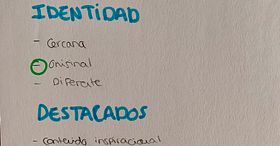 IDENTIDAD
- Cercana
- Original
- Diferente
DESTACADOS
- Contenido inspiracional